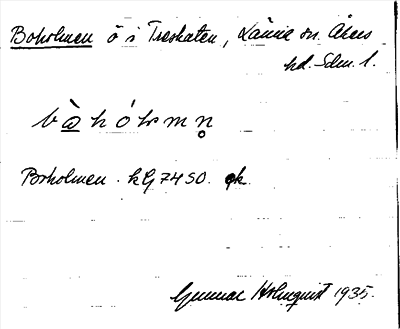 Boholmen ö i Treskaten, Länna sn. Åkers
hd. Sdm. l.
Boholmen. kG 7450. ek.
Gunnar Holmquist 1935.